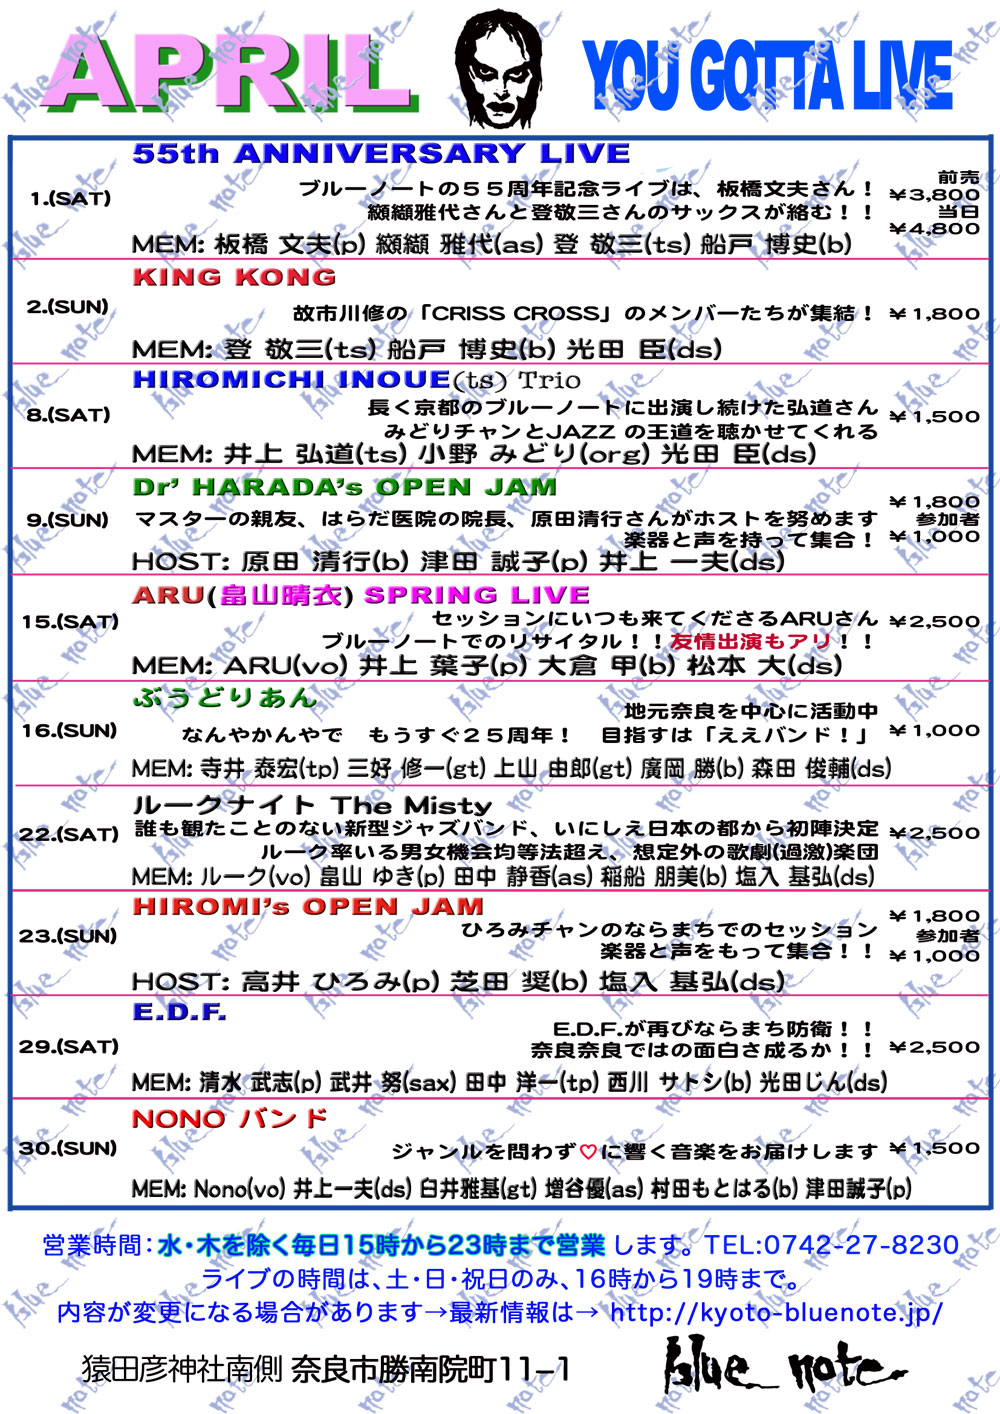 APRIL
YOU GOTTA LIVE
55th ANNIVERSARY LIVE
1.(SAT)
ブルーノートの５５周年記念ライブは、板橋文夫さん！
纐纈雅代さんと登敬三さんのサックスが絡む！！
前売
¥3,800
当日
¥4,800
MEM: 板橋 文夫(p) 纐纈 雅代(as) 登 敬三(ts) 船戸 博史(b)
KING KONG
2.(SUN)
故市川修の「CRISS CROSS」のメンバーたちが集結！ ¥1,800
MEM: 登 敬三(ts) 船戸 博史(b) 光田 臣(ds)
HIROMICHI INOUE(ts) Trio
8.(SAT)
長く京都のブルーノートに出演し続けた弘道さん
みどりチャンとJAZZ の王道を聴かせてくれる
¥1,500
MEM: 井上 弘道(ts) 小野 みどり(org) 光田 臣(ds)
Dr’ HARADA’s OPEN JAM
9.(SUN)
マスターの親友、はらだ医院の院長、原田清行さんがホストを努めます
楽器と声を持って集合！
¥1,800
参加者
¥1,000
HOST: 原田 清行(b) 津田 誠子(p) 井上 一夫(ds)
ARU(畠山晴衣) SPRING LIVE
15.(SAT)
セッションにいつも来てくださるARUさん
ブルーノートでのリサイタル！！友情出演もアリ！！
¥2,500
MEM: ARU(vo) 井上 葉子(p) 大倉 甲(b) 松本 大(ds)
ぶうどりあん
16.(SUN)
地元奈良を中心に活動中
なんやかんやで　もうすぐ２５周年！　目指すは「ええバンド！」
¥1,000
MEM: 寺井 泰宏(tp) 三好 修一(gt) 上山 由郎(gt) 廣岡 勝(b) 森田 俊輔(ds)
ルークナイト The Misty
22.(SAT)
誰も観たことのない新型ジャズバンド、いにしえ日本の都から初陣決定
ルーク率いる男女機会均等法超え、想定外の歌劇(過激)楽団
¥2,500
MEM: ルーク(vo) 畠山 ゆき(p) 田中 静香(as) 稲船 朋美(b) 塩入 基弘(ds)
HIROMI’s OPEN JAM
23.(SUN)
ひろみチャンのならまちでのセッション
楽器と声をもって集合！！
¥1,800
参加者
¥1,000
HOST: 高井 ひろみ(p) 芝田 奨(b) 塩入 基弘(ds)
E.D.F.
29.(SAT)
E.D.F.が再びならまち防衛！！
奈良奈良ではの面白さ成るか！！
¥2,500
MEM: 清水 武志(p) 武井 努(sax) 田中 洋一(tp) 西川 サトシ(b) 光田じん(ds)
NONO バンド
30.(SUN)
ジャンルを問わず♡に響く音楽をお届けします
¥1,500
MEM: Nono(vo) 井上一夫(ds) 臼井雅基(gt) 増谷優(as) 村田もとはる(b) 津田誠子(p)
営業時間：水・木を除く毎日15時から23時まで営業 します。 TEL:0742-27-8230
ライブの時間は、土・日・祝日のみ、16時から19時まで。
内容が変更になる場合があります→最新情報は→ http://kyoto-bluenote.jp/
猿田彦神社南側 奈良市勝南院町11−1
blue note